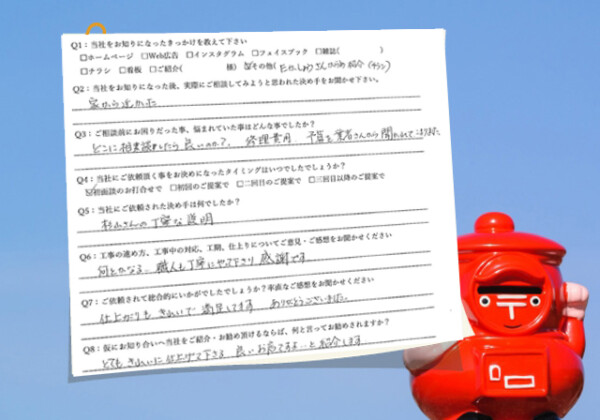 Q1：当社をお知りになったきっかけを教えて下さい
□ホームページ □Web広告 □インスタグラム □フェイスブック □雑誌( )
□チラシ □看板 □ご紹介( 様) ☑その他( さんからの紹介(チラシ)
Q2：当社をお知りになった後、実際にご相談してみようと思われた決め手をお聞かせ下さい。
家から近かった
Q3：ご相談前にお困りだった事、悩まれていた事はどんな事でしたか？
どこに相談したら良いのか？、修理費用、予算を業者さんから聞かれて
Q4：当社にご依頼頂く事をお決めになったタイミングはいつでしたでしょうか？
☑初面談のお打合せで □初回のご提案で □二回目のご提案で □三回目以降のご提案で
Q5：当社にご依頼された決め手は何でしたか？
杉山さんの丁寧な説明
Q6：工事の進め方、工事中の対応、工期、仕上りについてご意見・ご感想をお聞かせください
職人も丁寧にやって下さり 感謝です
Q7：ご依頼されて総合的にいかがでしたでしょうか？率直なご感想をお聞かせください
仕上がりも きれいで 満足してます ありがとうございました。
Q8：仮にお知り合いへ当社をご紹介・お勧め頂けるならば、何と言ってお勧めされますか？
とても きれいに 仕上げて下さる 良いお店ですよ…と紹介します
〒